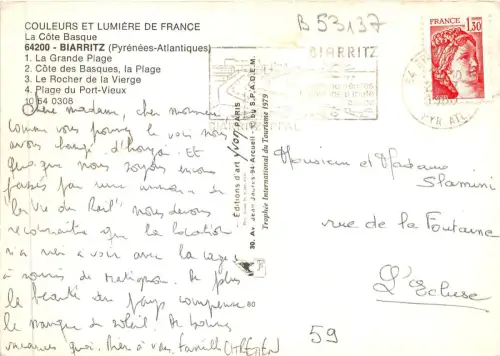 COULEURS ET LUMIÈRE DE FRANCE
La Côte Basque
64200 - BIARRITZ (Pyrénées-Atlantiques)
1. La Grande Plage
2. Côte des Basques, la Plage
3. Le Rocher de la Vierge
4. Plage du Port-Vieux
10 64 0308
B 53137
BIARRITZ
FRANCE
1,30
Chère madame, cher monsieur,
Comme vous pouvez le voir nous
avons changé d'horizon. Et
quoique nous soyons encore
par une
"la Vie du Rail" nous devons
reconnaître que la location
n'a rien à voir avec la cage
à souris de Matignon. De plus
la beauté du pays compense
le manque de soleil. De bonnes
vacances quoi. Bien à vous, famille CHRETIEN
80
Editions d'art yvon PARIS
30, Av. Jean Jaurès 94-Arcueil - © by S.P.A.D.E.M.
Trophée International du Tourisme 1979
Monsieur et Madame
Slamini
rue de la Fontaine
L'Ecluse
59